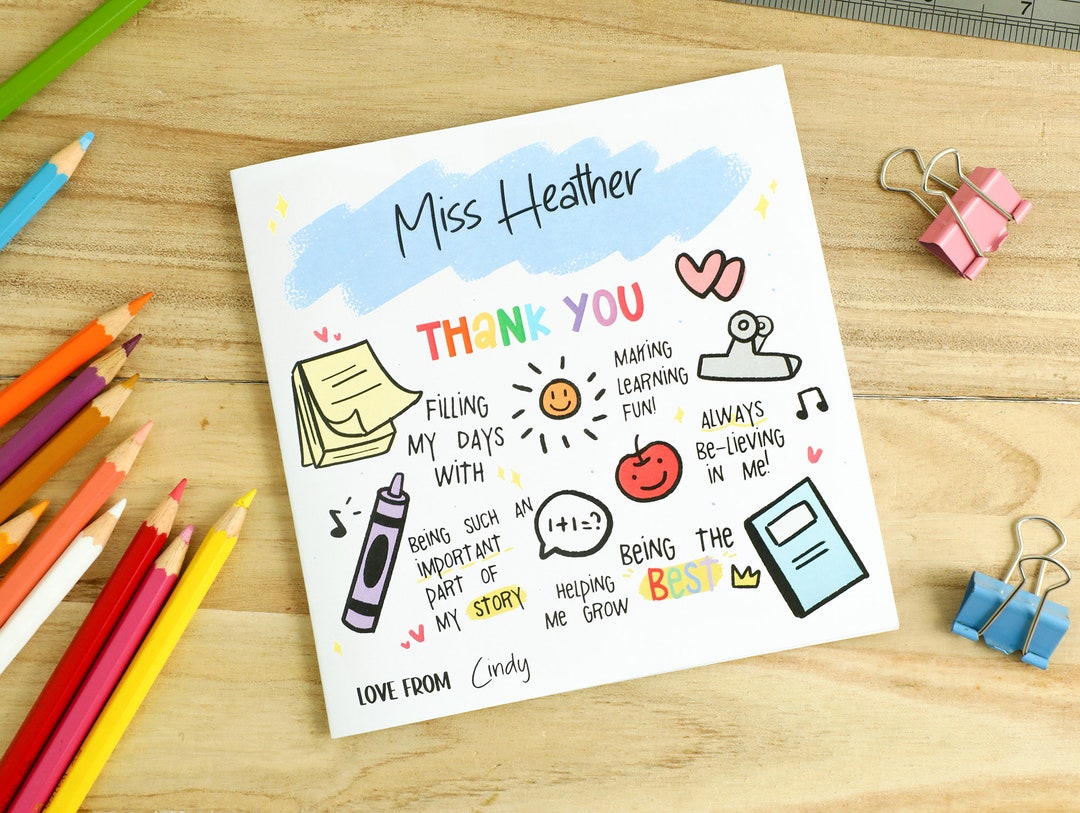 7
Miss Heather
THANK YOU
FILLING
MY DAYS
WITH
MAKING
LEARNING
FUN!
ALWAYS
BE-LIEVING
IN ME!
BEING SUCH AN
IMPORTANT
PART OF
MY STORY
1+1=?
HELPING
ME GROW
BEING THE
BEST
LOVE FROM Cindy